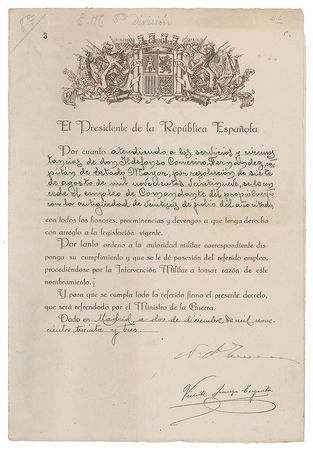 3
El Presidente de la República Española
Por cuanto atendiendo a los servicios y circuns
tancias de don Ildefonso Couceiro Fernández, ca
pitán de Estado Mayor, por resolución de siete
de agosto de mil novecientos veintinueve, se le con
cede El empleo de Comandante del propio Cuerpo
con la antigüedad de veintiseis de julio del año citado,
con todos los honores, preeminencias y devengos a que tenga derecho
con arreglo a la legislación vigente.
Por tanto ordeno a la autoridad militar correspondiente dis
ponga su cumplimiento y que se le dé posesión del referido empleo,
procediéndose por la Intervención Militar a tomar razón de este
nombramiento.
Y para que se cumpla todo lo referido firmo el presente decreto,
que será refrendado por el Ministro de la Guerra.
Dado en Madrid a dos de diciembre de mil nove
cientos treinta y tres.
Vicente